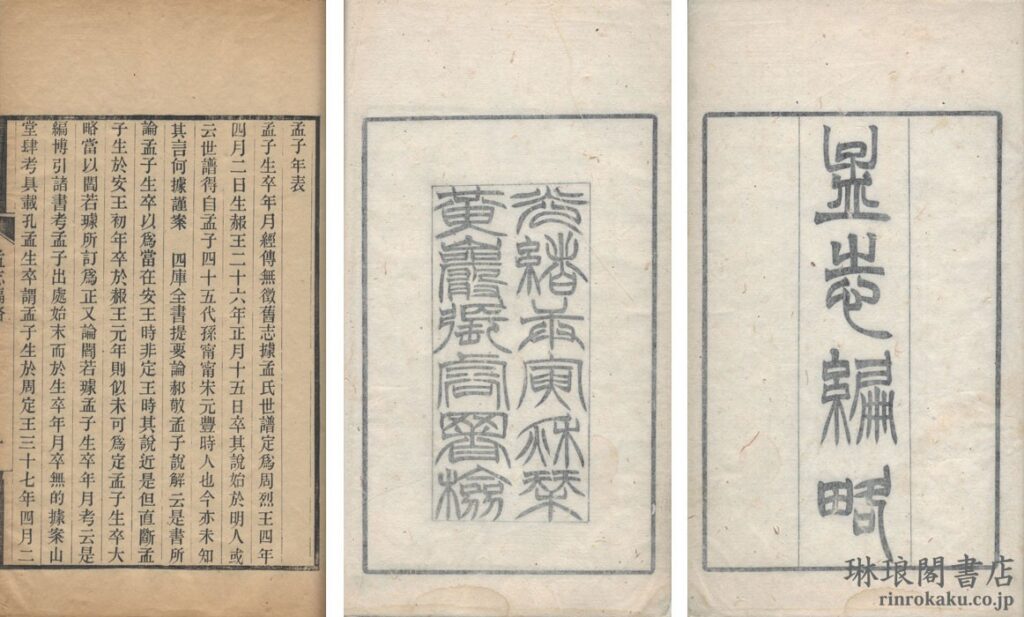 孟志編略
光緒庚寅秋栞
黃張署檢
孟子年表
孟子生卒年月經傳無徵舊志據孟氏世譜定爲周烈王四年
四月二日生赧王二十六年正月十五日卒其說始於明人或
云世譜得自孟子四十五代孫甯甯宋元豐時人也今亦未知
其言何據謹案　四庫全書提要論郝敬孟子說解云是書所
論孟子生卒以爲當在安王時非定王時其說近是但直斷孟
子生於安王初年卒於赧王元年則似未可爲定孟子生卒大
略當以閻若璩所訂爲正又論閻若璩孟子生卒年月考云是
編博引諸書考孟子出處始末而於生卒年月卒無的據案山
堂肆考具載孔孟生卒謂孟子生於周定王三十七年四月二
孟志編略
琳琅閣書店
rinrokaku.co.jp